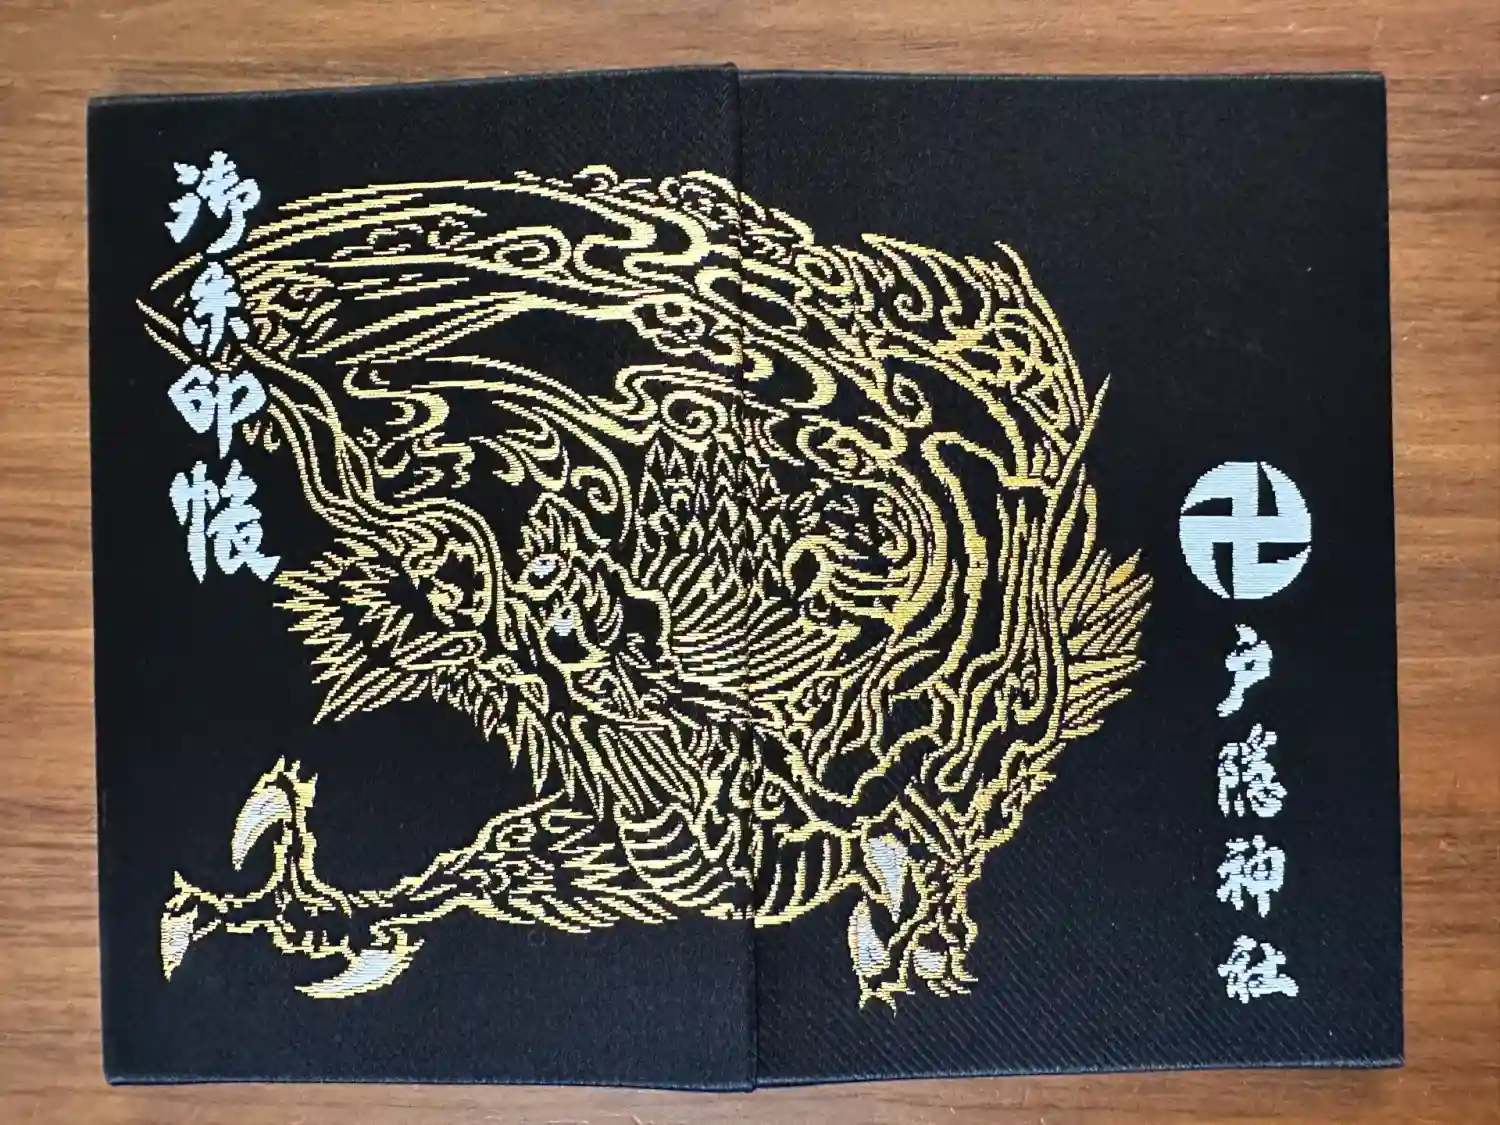 戸隠神社
御朱印帳